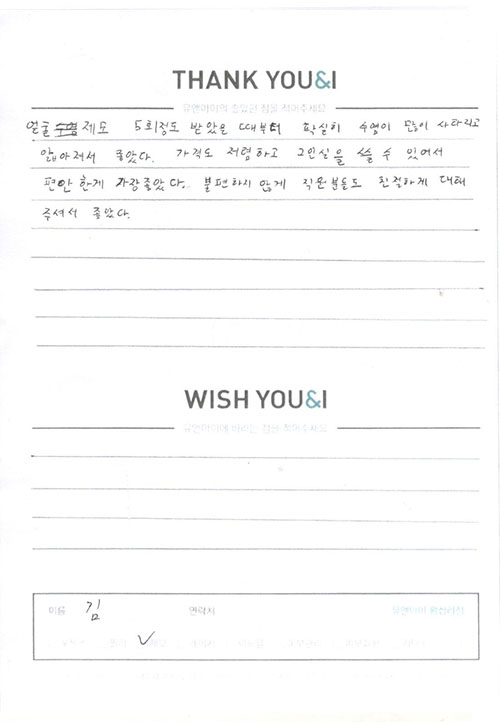 THANK YOU&I
유앤아이의 좋았던 점을 적어주세요
얼굴 제모 5회정도 받았을 때부터 확실히 수염이 많이 사라지고
얇아져서 좋았다. 가격도 저렴하고 1인실을 쓸 수 있어서
편안한게 가장좋았다. 불편하시 않게 직원분들도 친절하게 대해
주셔서 좋았다.
WISH YOU&I
유앤아이에 바라는 점을 적어주세요
이름 김 연락처